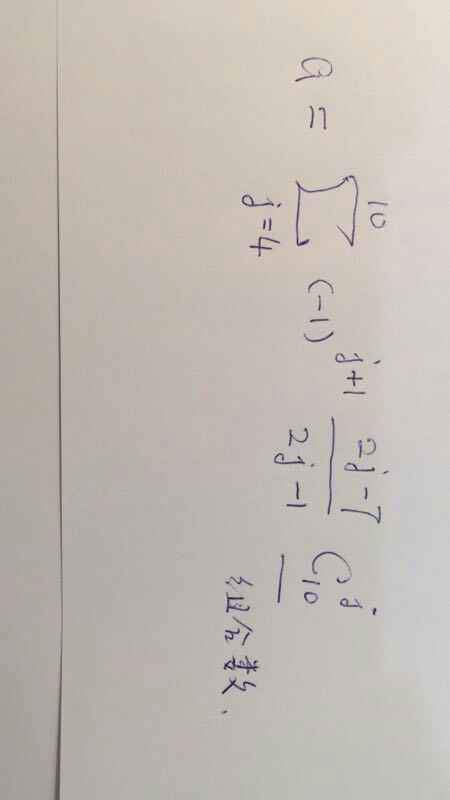 a = \sum_{j=4}^{10} (-1)^{j+1} \frac{2j-7}{2j-1} C_{10}^{j}
组合数.